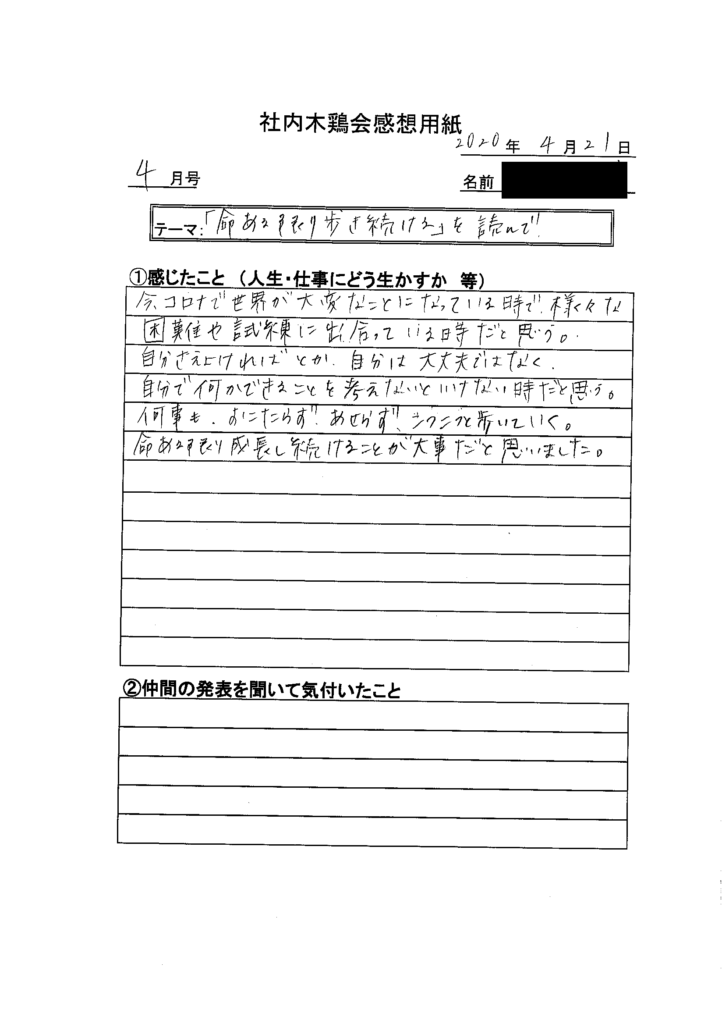 社内木鶏会感想用紙
2020年 4月21日
4月号
名前
テーマ:「命ある限り歩き続ける」を読んで
①感じたこと (人生・仕事にどう生かすか 等)
今、コロナで世界が大変なことになっている時で、様々な
困難や試練に出合っている時だと思う。
自分さえよければとか、自分は大丈夫ではなく、
自分で何かできることを考えないといけない時だと思う。
何事も、おこたらず、あせらず、コツコツと歩いていく。
命ある限り成長し続けることが大事だと思いました。
②仲間の発表を聞いて気付いたこと